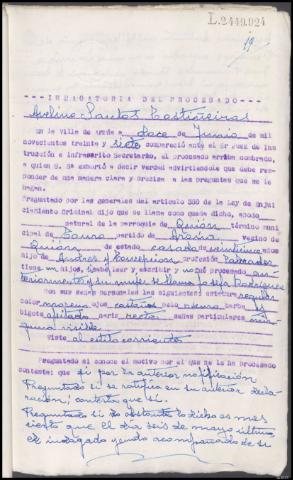 L.2449.924
19
--- INDAGATORIA DEL PROCESADO ---
Avelino Santos Castiñeiras
En la villa de Arzúa a doce de Junio de mil
novecientos treinta y siete compareció ante el Sr Juez de Ins
trucción e infrascrito Secretario, el procesado arriba nombrado,
a quien S. Sª exhortó a decir verdad advirtiendole que debe res-
ponder de una manera clara y precisa a las preguntas que se le
hagan.
Preguntado por las generales del artículo 388 de la Ley de Enjui
ciamiento Criminal dijo que se llama como queda dicho, apodo
natural de la parroquia de Quión término muni
cipal de Touro partido de Arzúa vecino de
Quión de estado casado de veintiun años
hijo de Andrés y Concepción profesión labrador
tiene un hijos, sabe leer y escribir y no fue procesado an
teriormente y su mujer se llama Josefa Rodríguez
Son sus señas personales las siguientes: estatura regular
color moreno ojos castaños pelo negro barba
bigote afeitado nariz recta señas particulares nin
guna visible
Viste al estilo corriente
Preguntado si conoce el motivo por el que se le ha procesado
contesta: que si por la anterior notificación
Preguntado si se ratifica en su anterior decla-
ración; contesta que sí.
Preguntado si no obstante lo dicho es mas
cierto que el día seis de mayo último
el indagado yendo acompañado de su